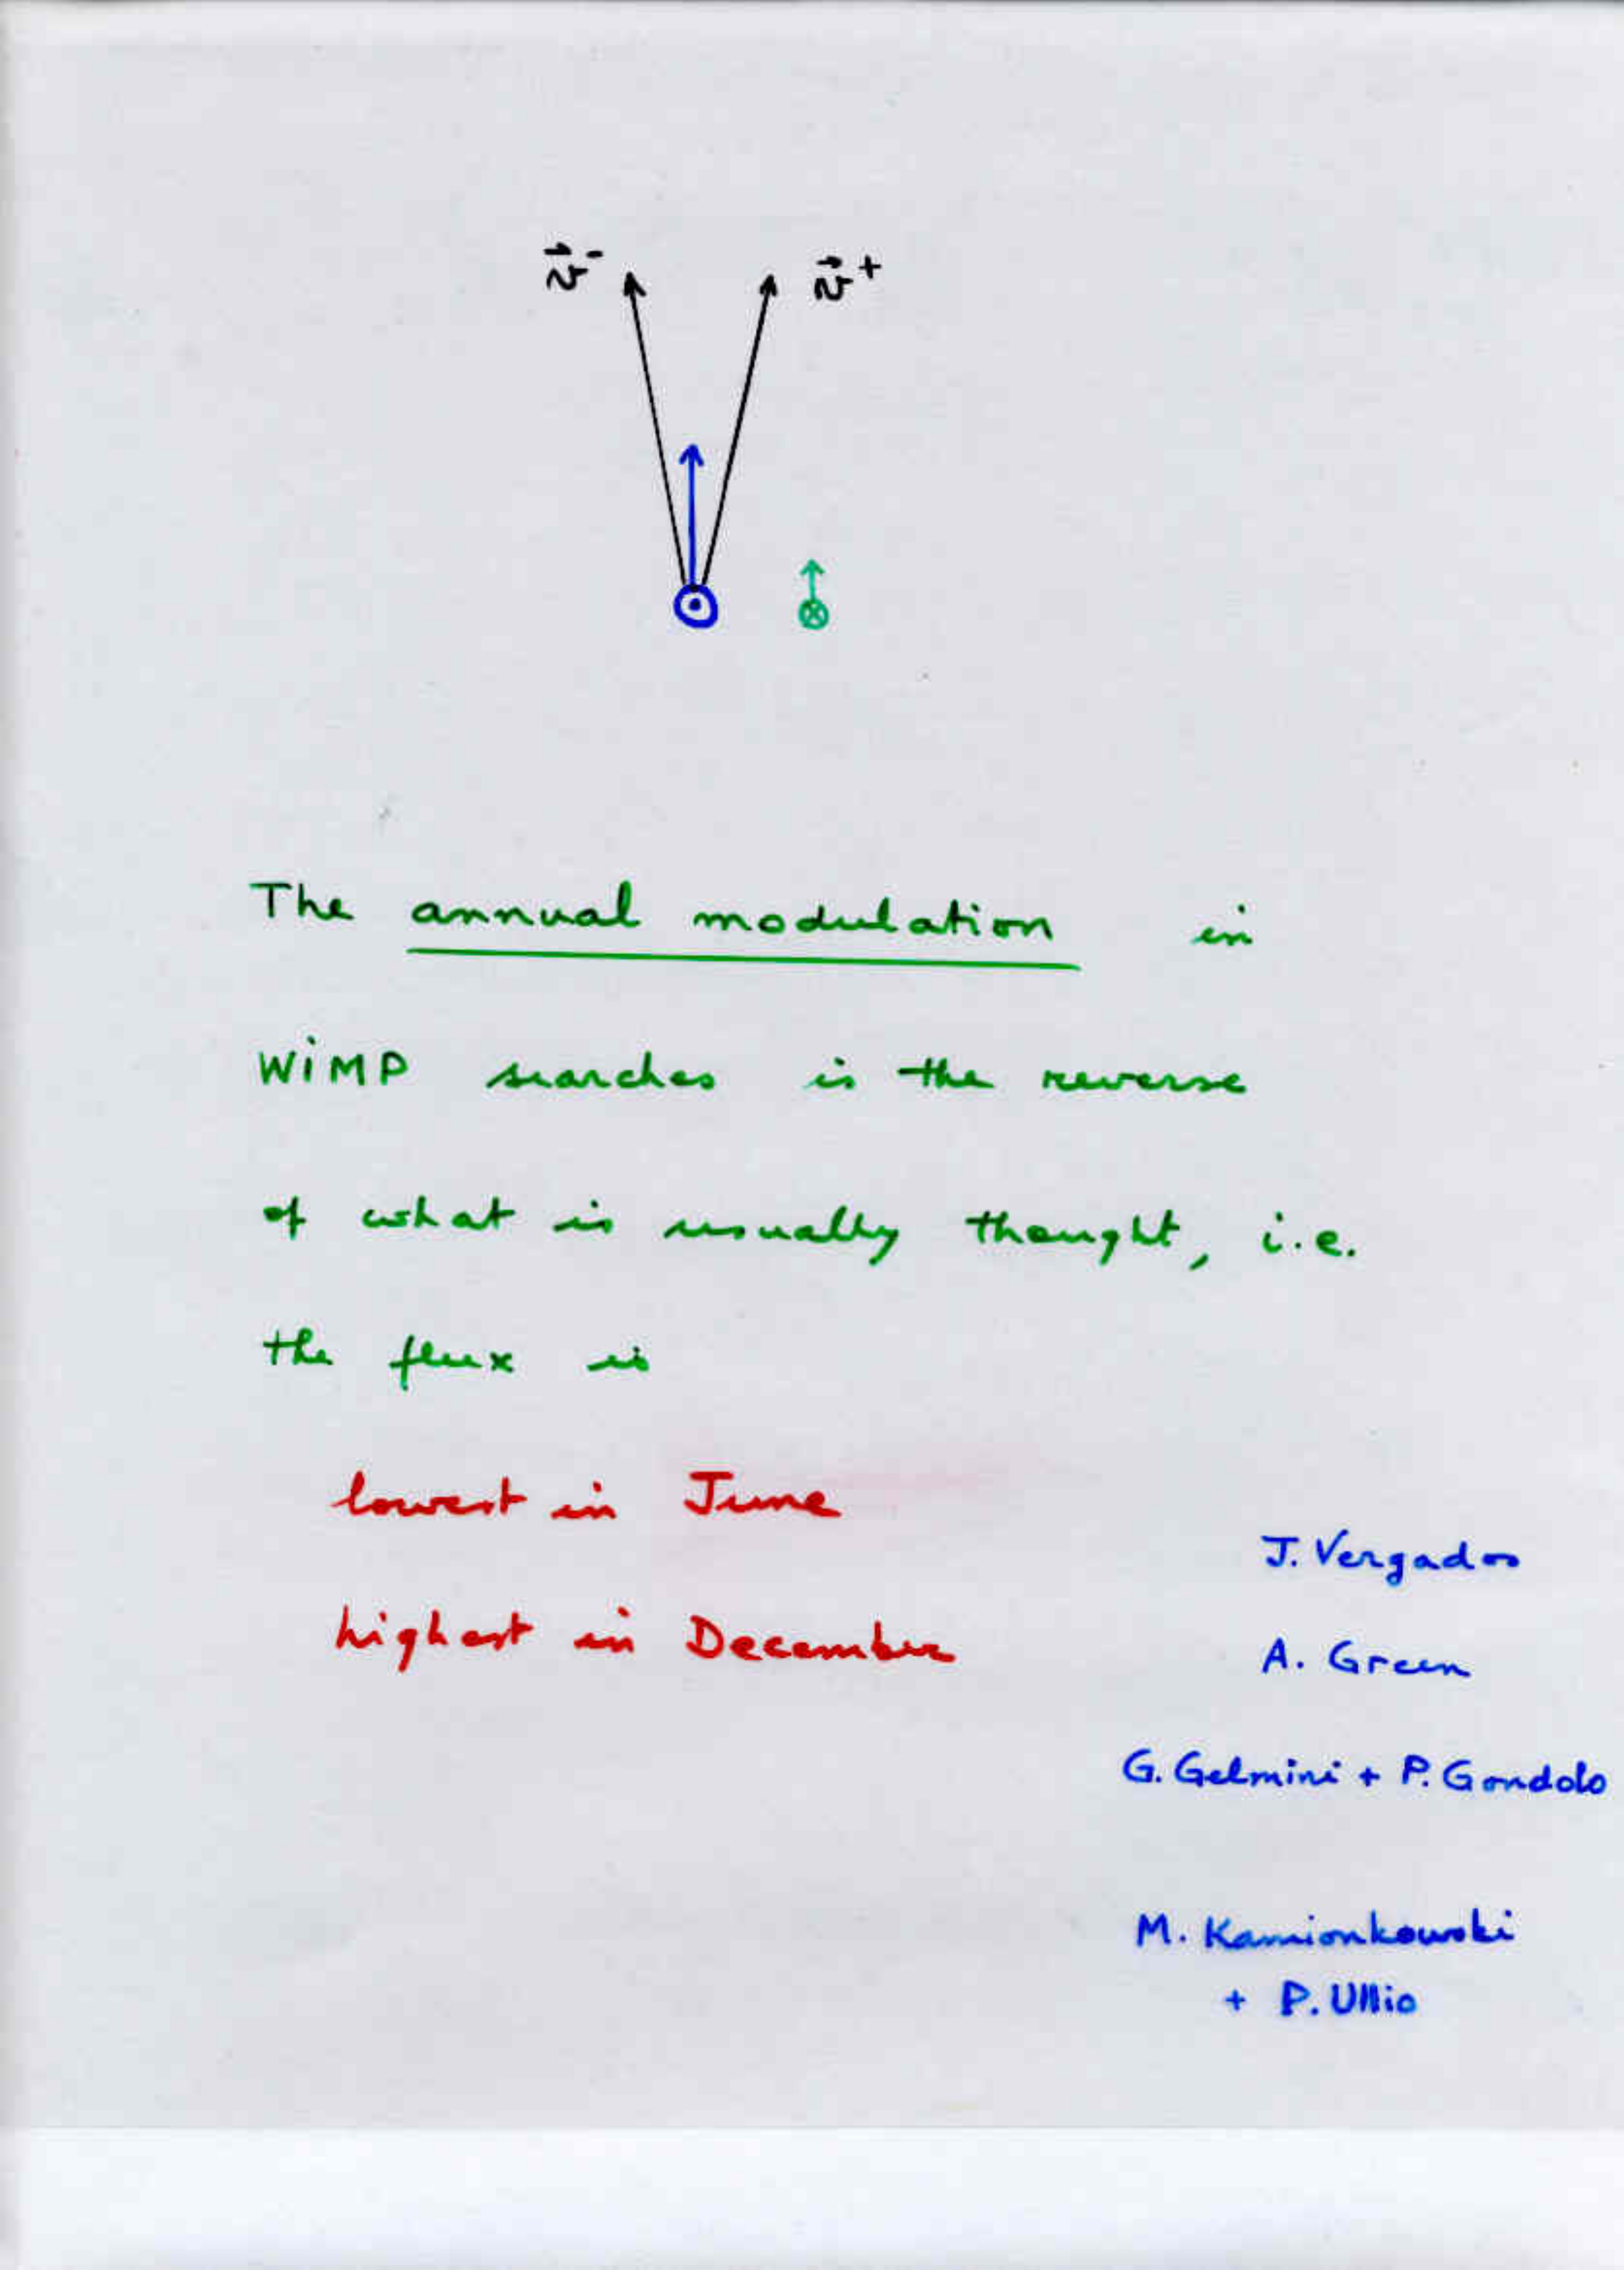 v⃗⁻ v⃗⁺
The annual modulation in
WIMP searches is the reverse
of what is usually thought, i.e.
the flux is
lowest in June
highest in December
J. Vergados
A. Green
G. Gelmini + P. Gondolo
M. Kamionkowski
+ P. Ullio